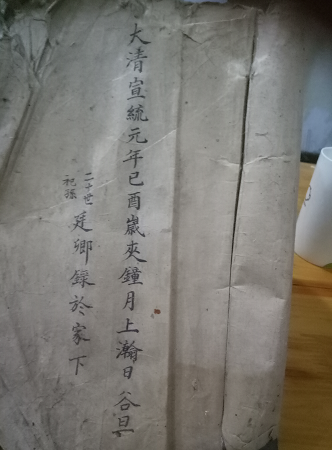 大清宣統元年己酉歲夾鐘月上瀚日 谷旦
二十世
祝孫
廷卿錄於家下